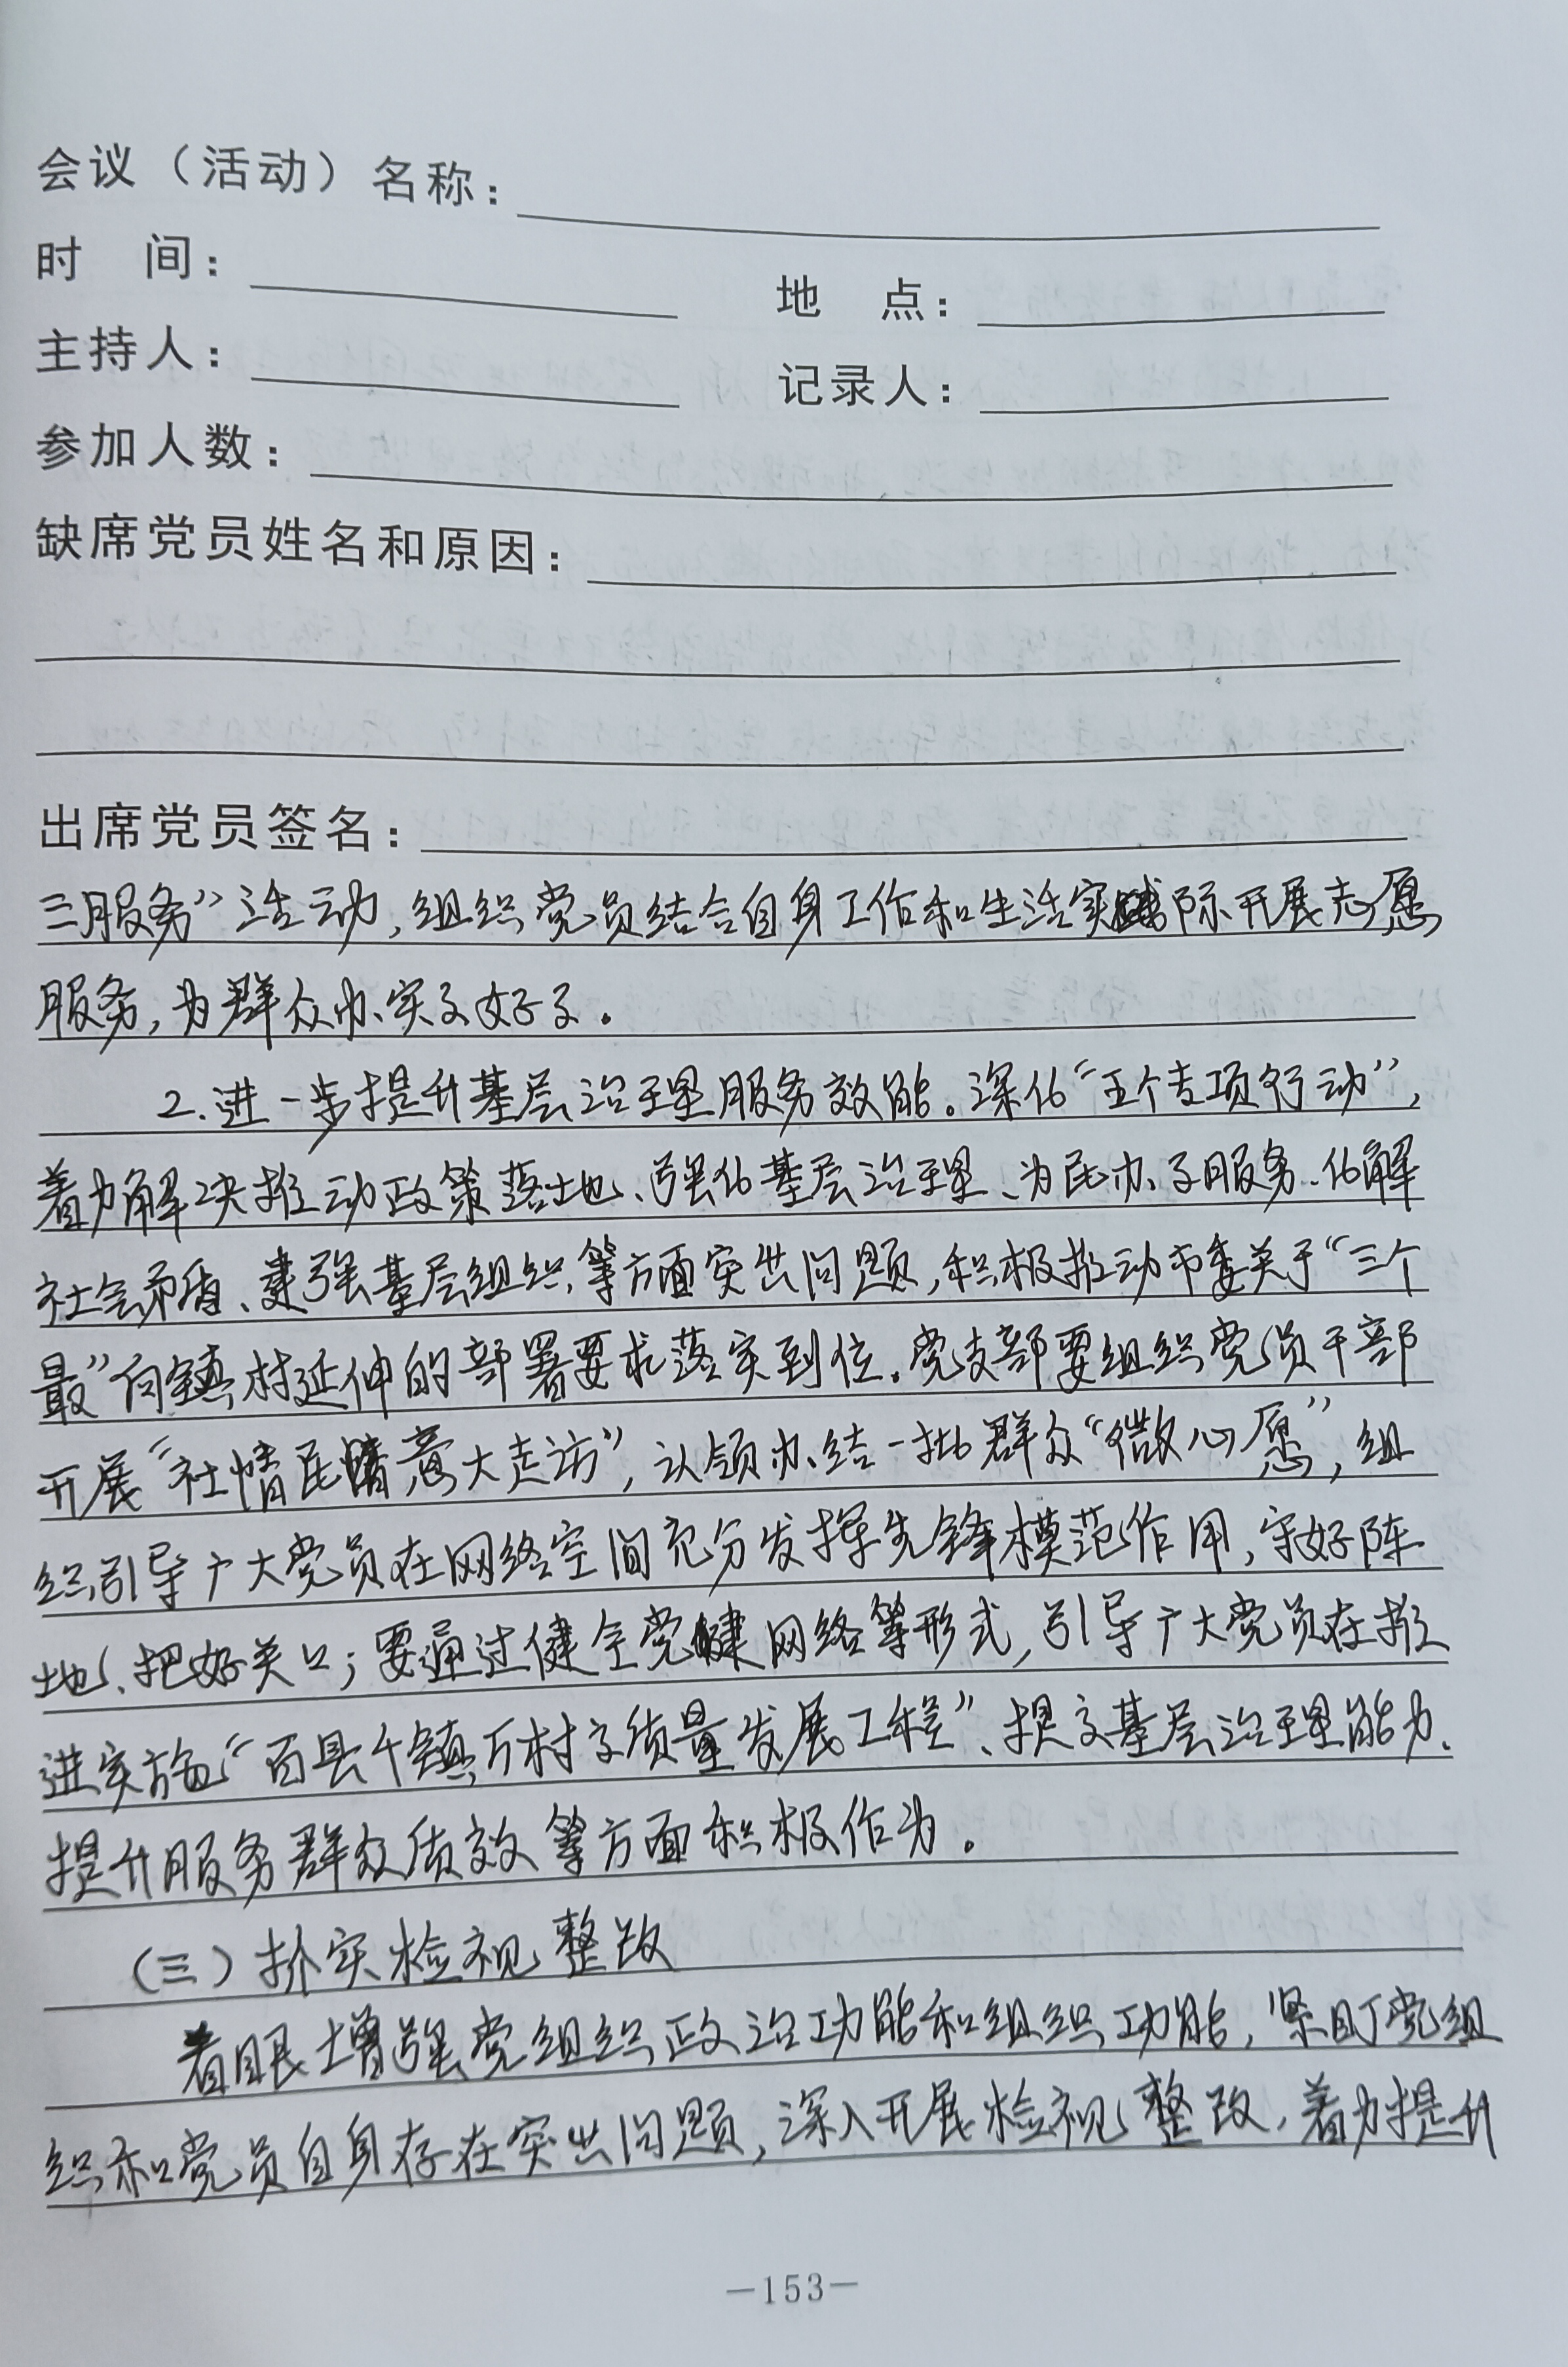 会议（活动）名称：
时　间：　　地　点：
主持人：　　记录人：
参加人数：
缺席党员姓名和原因：
出席党员签名：
三服务”活动，组织党员结合自身工作和生活实际开展志愿
服务，为群众办实事好事。
2.进一步提升基层治理服务效能。深化“五个专项行动”，
着力解决推动政策落地、强化基层治理、为民办事服务、化解
社会矛盾、建强基层组织等方面突出问题，积极推动市委关于“三个
最”向镇村延伸的部署要求落实到位。党支部要组织党员干部
开展“社情民意大走访”，认领办结一批群众“微心愿”，组
织引导广大党员在网络空间充分发挥先锋模范作用，守好阵
地、把好关口；要通过健全党建网络等形式，引导广大党员在推
进实施“百县千镇万村高质量发展工程”、提高基层治理能力、
提升服务群众质效等方面积极作为。
（三）抓实检视整改
着眼增强党组织政治功能和组织功能，紧盯党组
织和党员自身存在突出问题，深入开展检视整改，着力提升
—153—